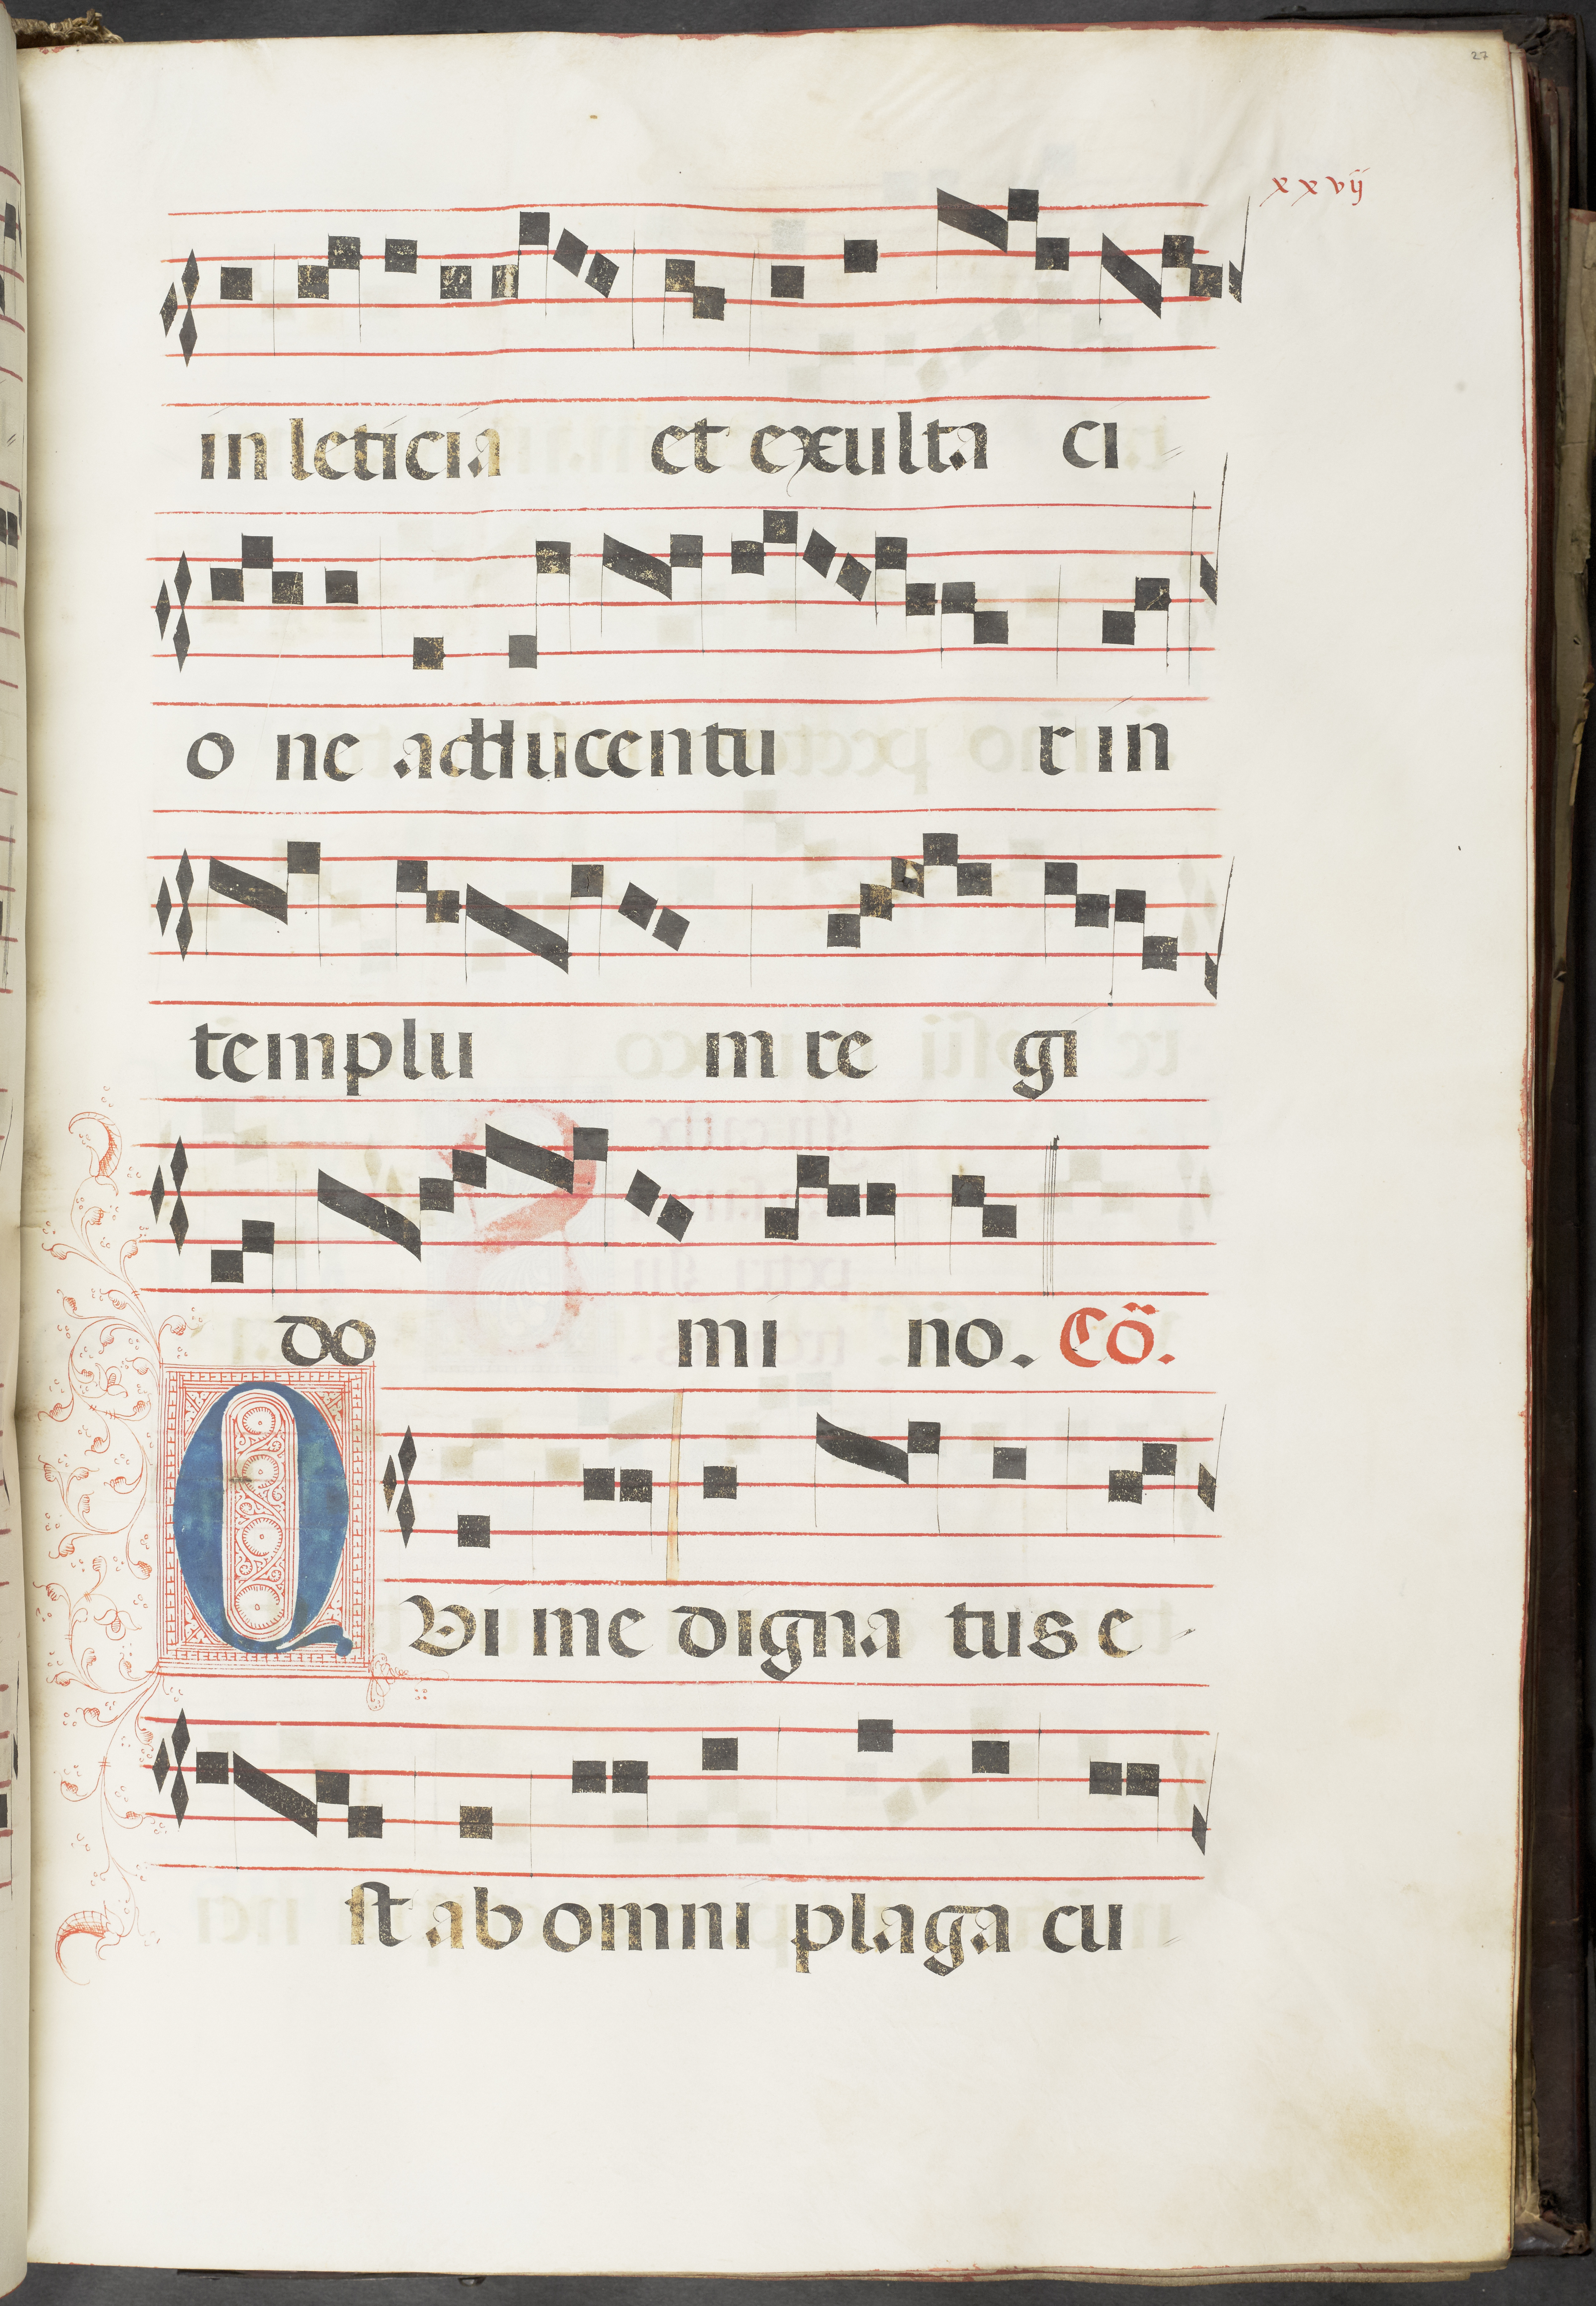 27
xxvij
in leticia et exulta ci
o ne adducentu r in
templu m re gi
do mi no. Cõ.
QVi me digna tus e
st ab omni plaga cu